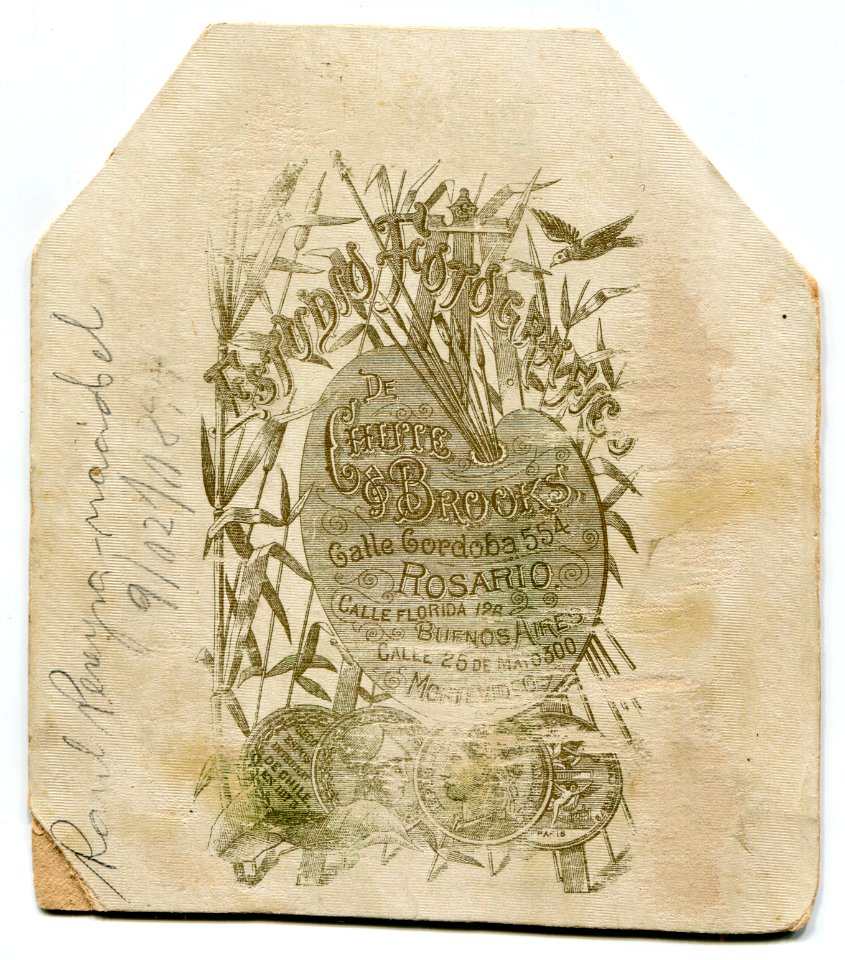 ESTUDIO FOTOGRAFICO
DE
CHUTE
& BROOKS.
Calle Cordoba 554
ROSARIO.
CALLE FLORIDA
BUENOS AIRES
CALLE 25 DE MAYO 300
MONTEVIDEO
DE CHILE
PARIS
Raul Pereyra
9/02/18